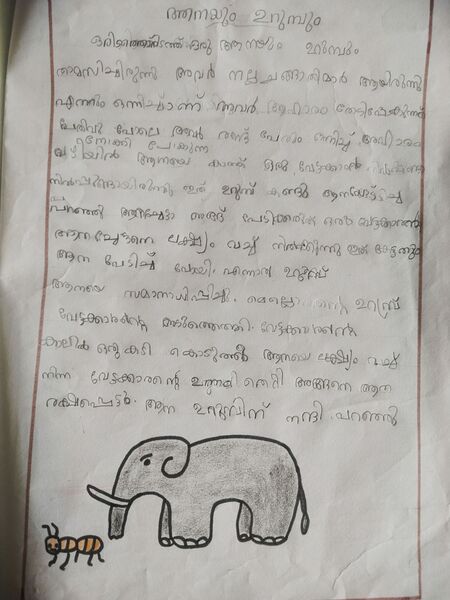 ആനയും ഉറുമ്പും
ഒരിടത്തൊരിടത്ത് ഒരു ആനയും ഉറുമ്പും
താമസിച്ചിരുന്നു അവർ നല്ല ചങ്ങാതിമാർ ആയിരുന്നു
എന്നും ഒന്നിച്ചാണ് അവർ ആഹാരം തേടിപ്പോകുന്നത്
പതിവു പോലെ അവർ രണ്ടു പേരും ഒന്നിച്ച് ആഹാരം
തേടി പോകുന്ന
വഴിയിൽ ആനയെ കാത്ത് ഒരു വേട്ടക്കാരൻ
നിൽപ്പുണ്ടായിരുന്നു ഇത് ഉറുമ്പ് കണ്ടു ആനയോട്
പറഞ്ഞു ആനച്ചേട്ടാ അങ്ങ് ഒരു വേട്ടക്കാരൻ
ആനച്ചേട്ടനെ ലക്ഷ്യം വച്ച് നിൽക്കുന്നു ഇത് കേട്ടതും
ആന പേടിച്ച് പോയി. എന്നാൽ ഉറുമ്പ്
ആനയെ സമാധാനിപ്പിച്ചു. മെല്ലെ ഉറുമ്പ്
വേട്ടക്കാരന്റെ അടുത്തെത്തി. വേട്ടക്കാരന്റെ
കാലിൽ ഒരു കടി കൊടുത്തു ആനയെ ലക്ഷ്യം വച്ച്
നിന്ന വേട്ടക്കാരന്റെ ഉന്നം തെറ്റി അങ്ങനെ ആന
രക്ഷപ്പെട്ടു. ആന ഉറുമ്പിന് നന്ദി പറഞ്ഞു